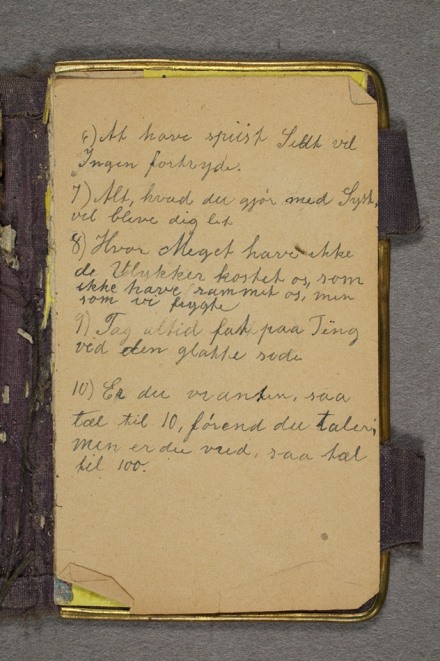 6) At have spiist Lidt vil
Ingen fortryde.
7) Alt, hvad du gjør med Lyst,
vil bleve dig let
8) Hvor Meget have ikke
de Ulykker kostet os, som
ikke have rammet os, men
som vi frygte
9) Tag altid fat paa Ting
ved den glatte side
10) Er du vranten, saa
tæl til 10, førend du taler,
men er du vred, saa tæl
til 100.